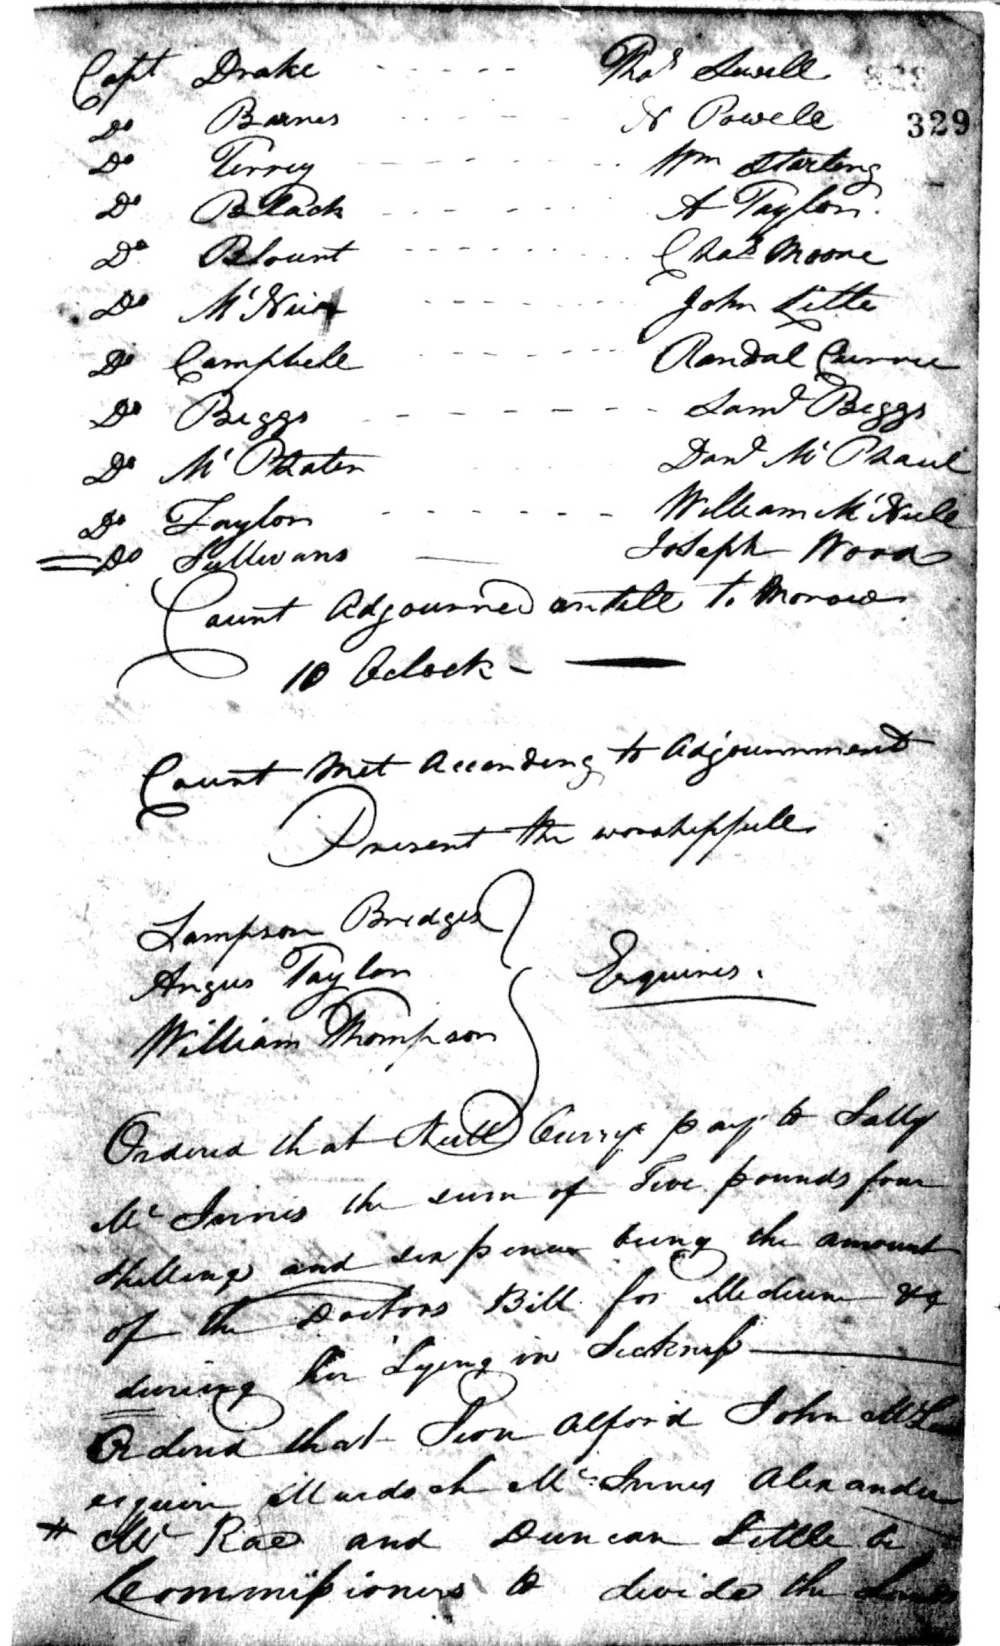 Capt Drake - - - - - Thos Sewell
329
Do Barnes - - - - - N Powell
Do Terrey - - - - - - Wm Starling
Do Black - - - - - A Taylor.
Do Blount - - - - - - Chas Moore
Do McNair - - - - - John Little
Do Campbell - - - - - - Randal Currie
Do Biggs - - - - - - Saml Biggs
Do Mc Phater Danl Mc Phaul
Do Taylor - - - - - - William McNeill
Do Sullivans Joseph Wood
Court Adjourned untill to Morow
10 Oclock -
Court Met According to Adjournment
Present the worshipfull
Sampson Bridges
Angus Taylor Esquires.
William Thompson
Ordered that Neill Curry pay to Sally
Mc Innis the sum of Five pounds four
Shillings and six pence being the amount
of the Doctors Bill for Medicine &c
during her Lying in Sickness
Ordered that Sion Alford John
esquire Murdoch Mc Innes Alexander
Mc Rae and Duncan Little be
Commissioners to devide the